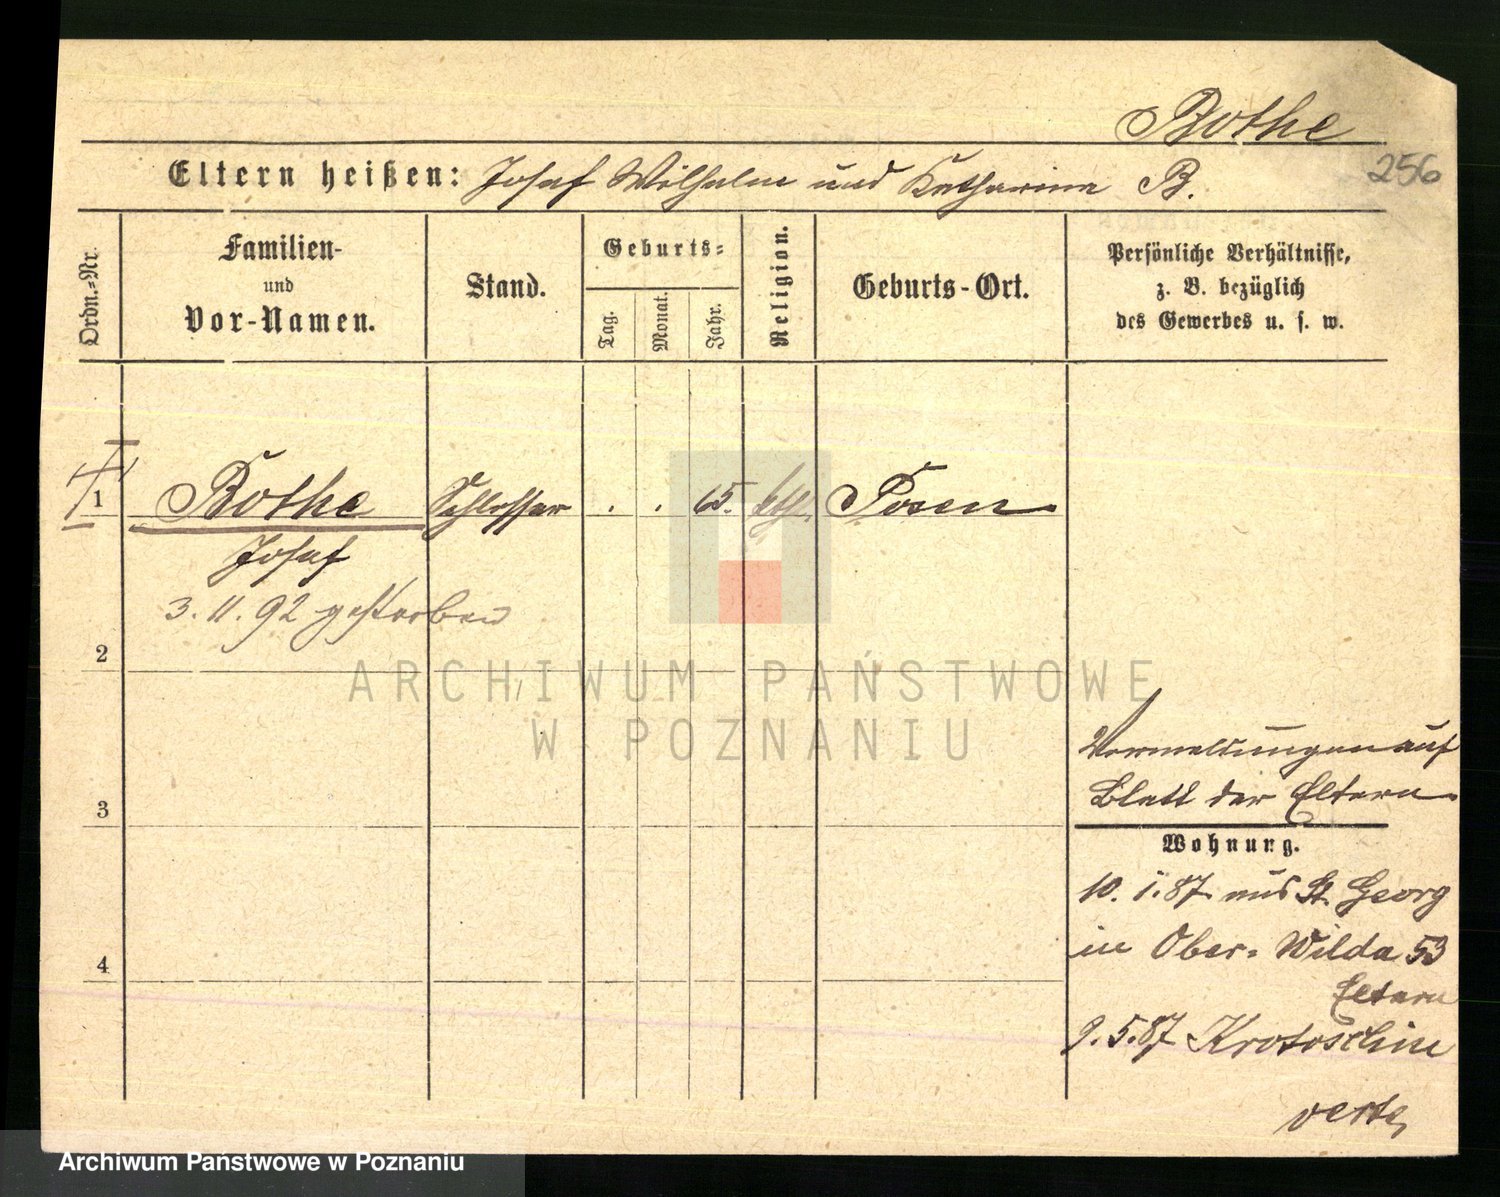 Bothe
256
Eltern heißen: Josef Wilhelm und Katharina B.
Ordn.-Nr.
Familien-
und
Vor-Namen.
Stand.
Geburts-
Tag.
Monat.
Jahr.
Religion.
Geburts-Ort.
Persönliche Verhältnisse,
z. B. bezüglich
des Gewerbes u. s. w.
1 Bothe Schlosser . . 65. kth. Posen
Josef
3. 11. 92 gestorben
2
ARCHIWUM PAŃSTWOWE
W POZNANIU
Vermeldungen auf
Blatt der Eltern
3
Wohnung.
10. 1. 87 aus St. Georg
in Ober-Wilda 53
4
Eltern
9. 5. 87 Krotoschin
verte
Archiwum Państwowe w Poznaniu